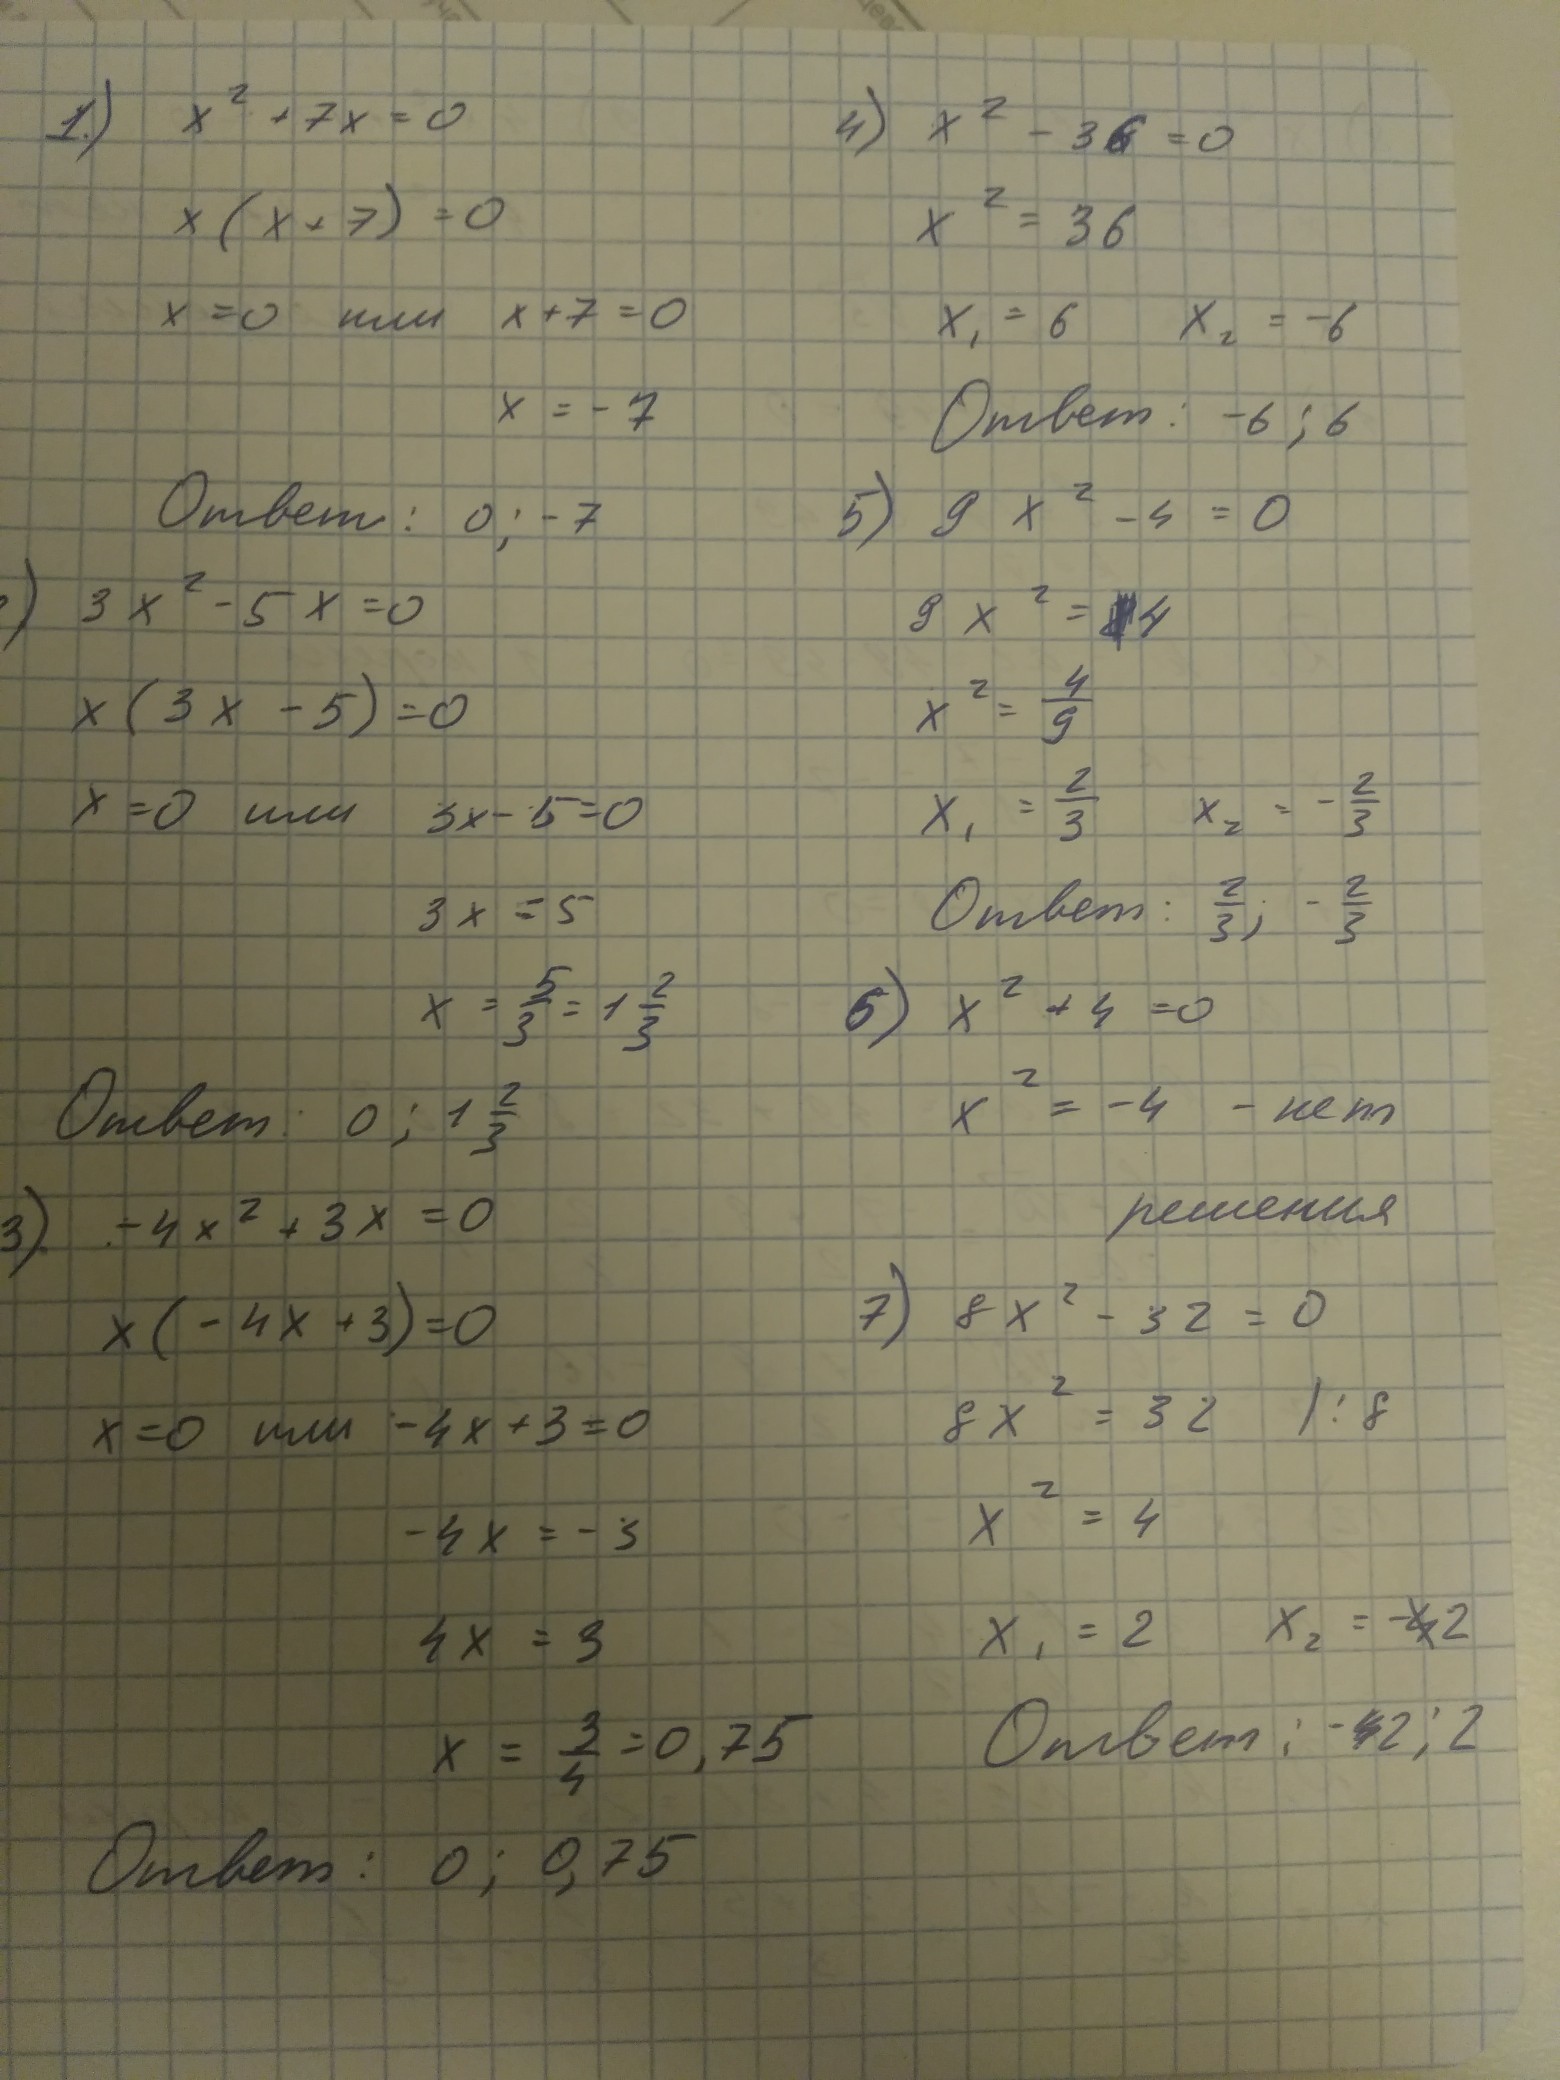 1.) x² + 7x = 0
x(x + 7) = 0
x = 0 или x + 7 = 0
x = -7
Ответ: 0; -7
2) 3x² - 5x = 0
x(3x - 5) = 0
x = 0 или 3x - 5 = 0
3x = 5
x = 5/3 = 1 2/3
Ответ: 0; 1 2/3
3) -4x² + 3x = 0
x(-4x + 3) = 0
x = 0 или -4x + 3 = 0
-4x = -3
4x = 3
x = 3/4 = 0,75
Ответ: 0; 0,75
4) x² - 36 = 0
x² = 36
x₁ = 6 x₂ = -6
Ответ: -6; 6
5) 9x² - 4 = 0
9x² = 4
x² = 4/9
x₁ = 2/3 x₂ = -2/3
Ответ: 2/3; -2/3
6) x² + 4 = 0
x² = -4 - нет
решения
7) 8x² - 32 = 0
8x² = 32 /:8
x² = 4
x₁ = 2 x₂ = -2
Ответ: -2; 2